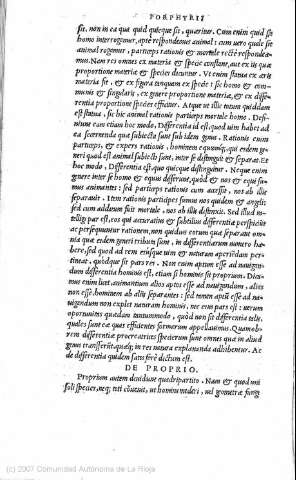 PORPHYRII
sit, non in ea qua quid quæque sit, quæritur. Cum enim quid sit
homo interrogemur, apte respondemus animal: cum vero quale sit
animal rogemur, particeps rationis & mortale recte respondea-
mus. Nam res omnes ex materia & specie constant, aut ex iis quæ
proportione materiæ & speciei dicuntur. Ut enim statua ex æris
materia sit, & ex figura tanquam ex specie: sic homo & com-
munis & singularis ex genere proportione materiæ, & ex diffe-
rentia proportione speciei efficitur. Atque ut illic totum quiddam
est statua, sic hic animal rationis particeps mortale homo. Defi-
niunt eam etiam hoc modo, Differentia id est, quod inter habet ad
ea secernenda quæ subiecta sunt sub idem genus. Rationis enim
particeps, & expers rationis, hominem equumque, qui eidem ge-
neri quod est animal subiecti sunt, inter se distinguit & separat. Et
hoc modo, Differentia est, quo quicque distinguitur. Neque enim
genere inter se homo & equus differunt, quod & nos & equi su-
mus animantes: sed particeps rationis cum accessit, nos ab illis
separavit. Item rationis participes sumus nos quidem & angeli:
sed cum additum fuit mortale, nos ab illis distinxit. Sed illud in-
telligi par est, eos qui accuratius & subtilius differentia perspicere
ac persequuntur rationem, non quiduis eorum quæ separant om-
nia quæ eidem generi tributa sunt, in differentiarum numero ha-
bere, sed quod ad rem eiusque vim & naturam aperiendam per-
tineat, quodque sit pars rei. Non enim aptum esse ad navigan-
dum differentia hominis est, etiam si hominis sit proprium. Dica-
mus enim licet animantium alios aptos esse ad navigandum, alios
non esse. hominem ab aliis separantes: sed tamen apti esse ad na-
vigandum non explet naturam hominis, nec eius pars est: verum
oportunitas quædam tantummodo, quod non sit differentia talis,
quales sunt eæ quas efficientes formarum appellavimus. Quamob-
rem differentiæ procreatrices specierum sunt omnes quæ in aliud
genus transferunt, quæque in rei natura explananda adhibentur. Ac
de differentia quidem satis fere dictum est.
DE PROPRIO.
Proprium autem dividunt quadripartito. Nam & quod uni
soli speciei, neque toti convenit, ut homini mederi, vel geometræ fungi
(c) 2007 Comunidad Autónoma de La Rioja